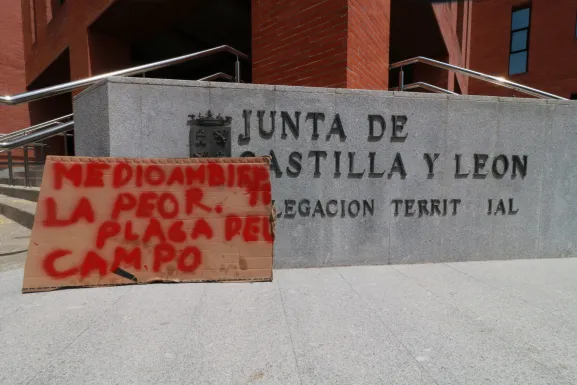 JUNTA DE
CASTILLA Y LEON
LEGACION TERRIT IAL
LA PEOR.
PLAGA DEL
CAMPO